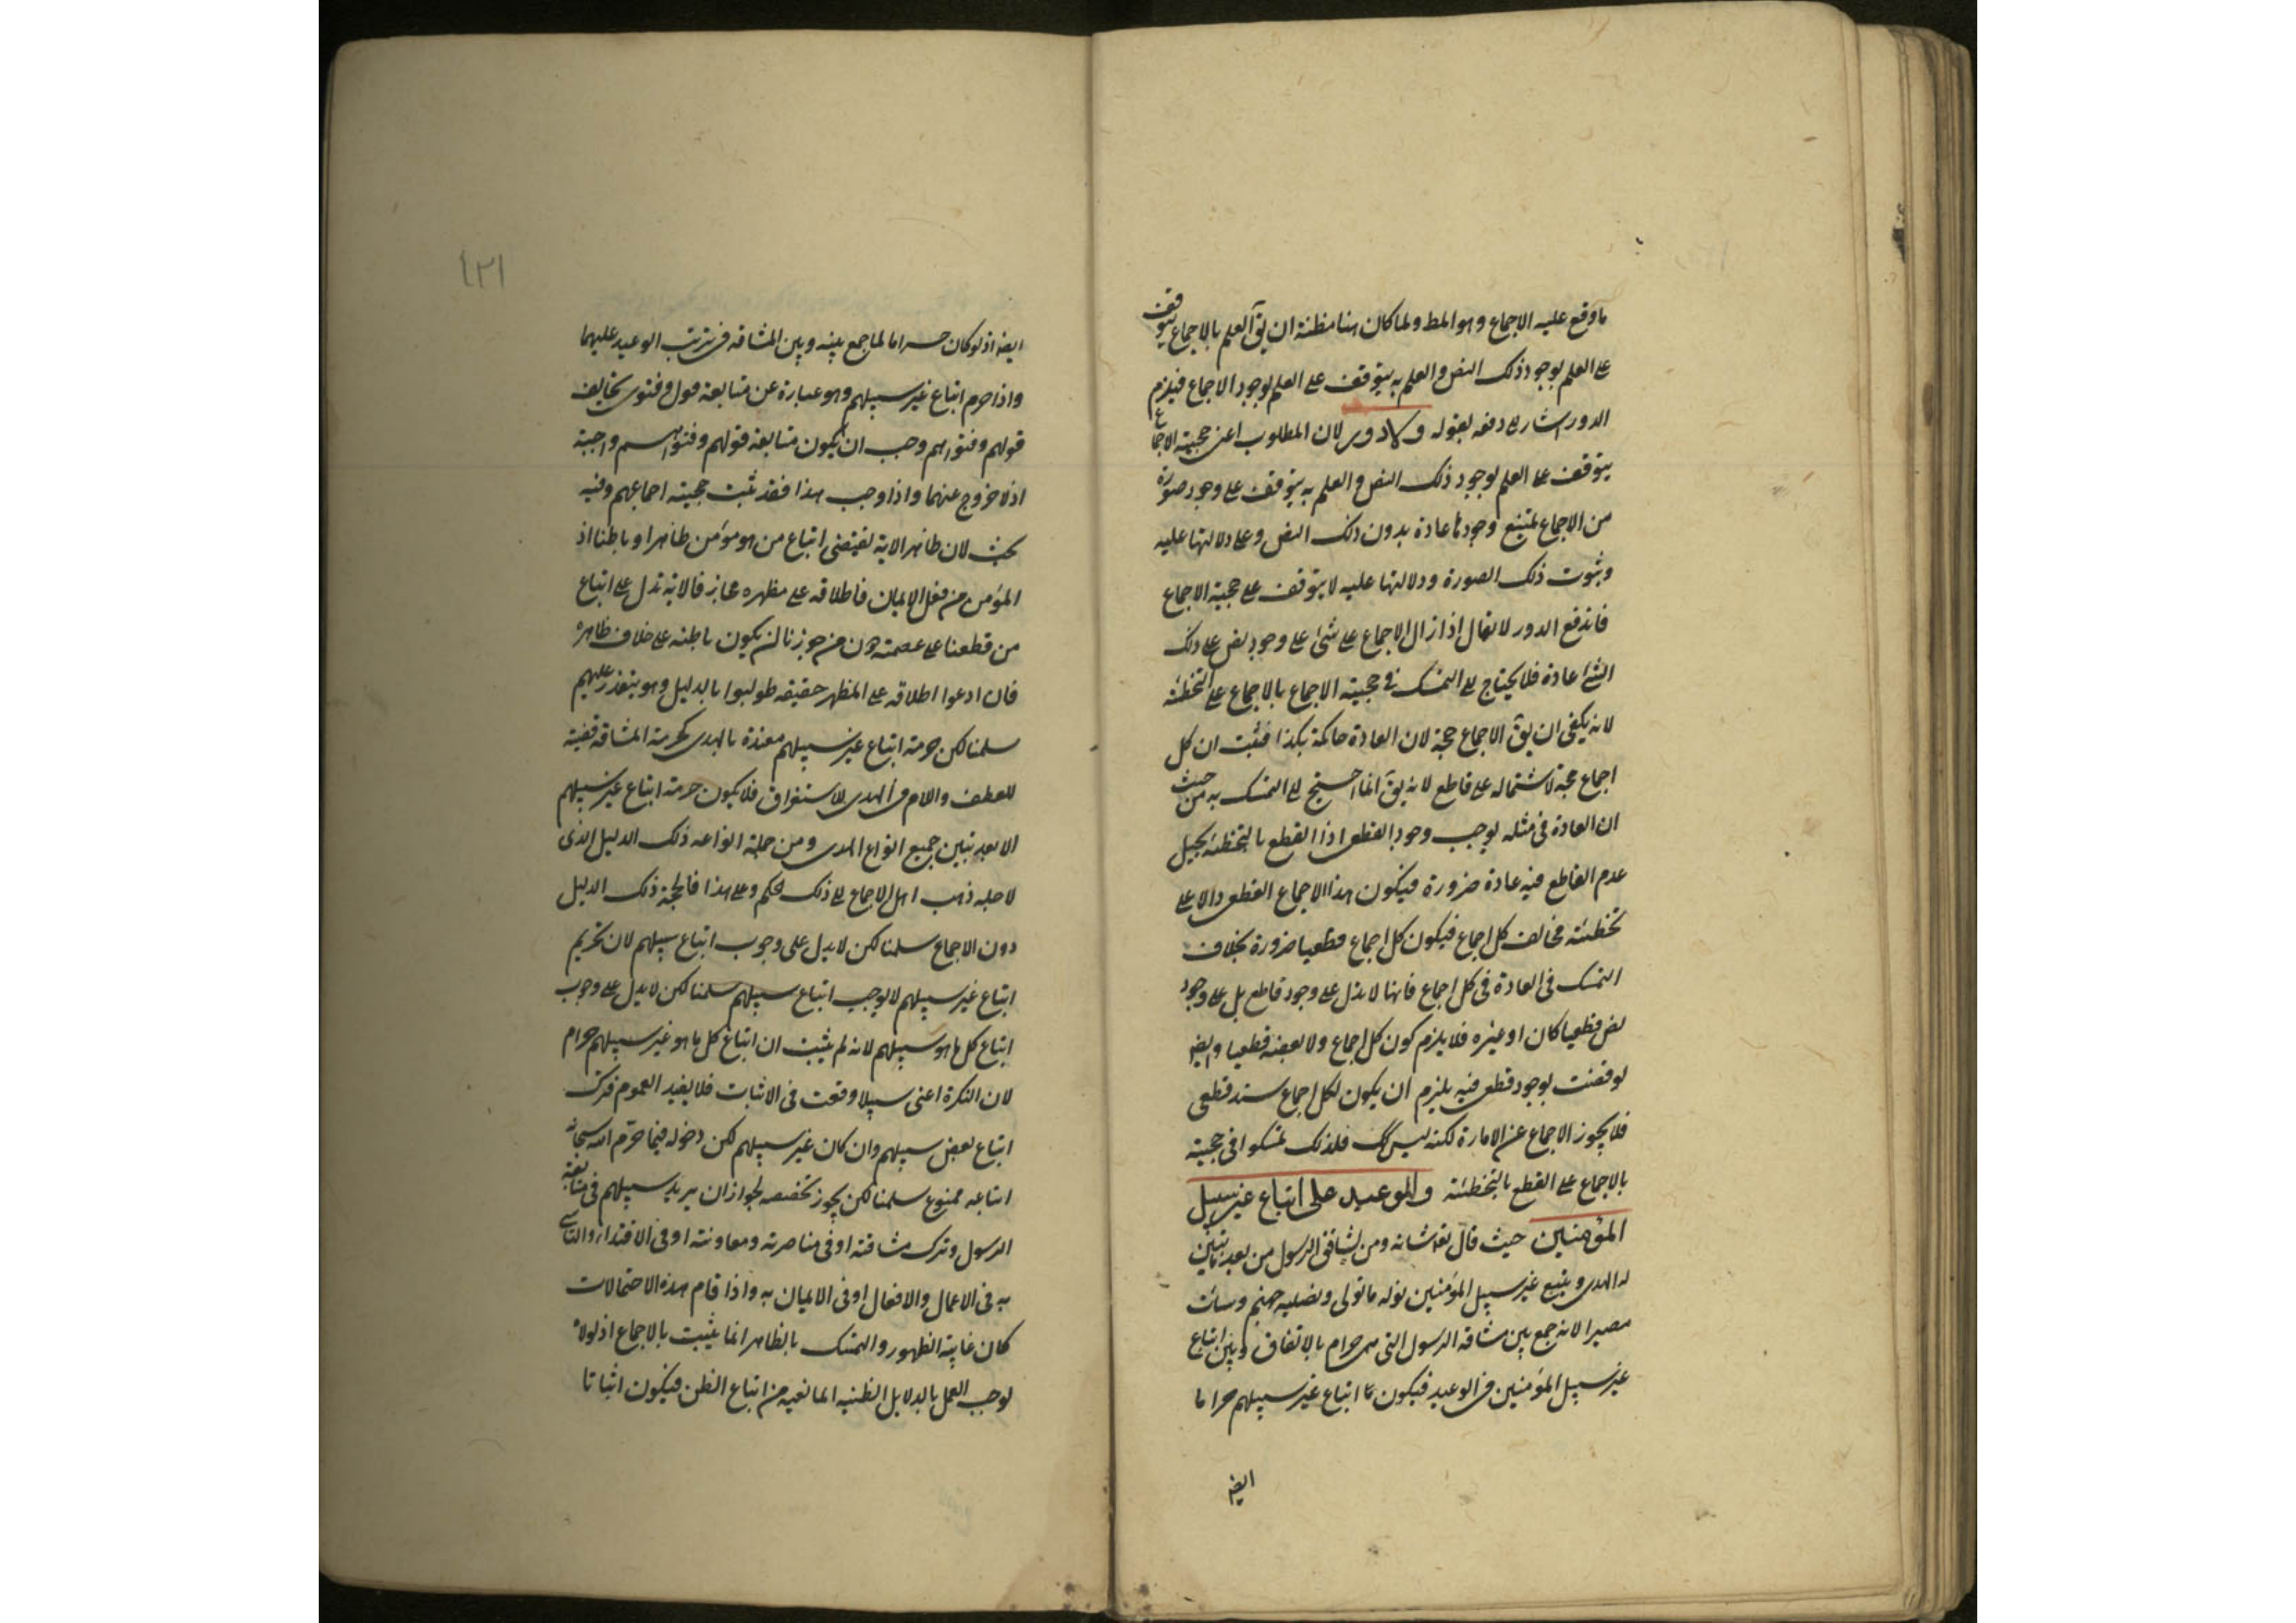 ما وقع عليه الاجماع و هو المط و لما كان هنا مظنة ان يق العلم بالاجماع يتوقف
على العلم بوجود ذلك النص و العلم به يتوقف على العلم بوجود الاجماع فيلزم
الدور اشار الى دفعه بقوله و لا دور لان المطلوب اعنى حجية الاجماع
يتوقف على العلم بوجود ذلك النص و العلم به يتوقف على وجود صورة
من الاجماع يمتنع وجودها عادة بدون ذلك النص و على دلالتها عليه
و ثبوت ذلك الصورة و دلالتها عليه لا يتوقف على حجية الاجماع
فاندفع الدور لا يقال اذا زال الاجماع على شئ على وجود نص على ذلك
الشئ عادة فلا يحتاج الى التمسك فى حجية الاجماع بالاجماع على التخطئة
لانه يكفى ان يق الاجماع حجة لان العادة حاكمة بكذا فثبت ان كل
اجماع حجة لاشتماله على قاطع لانه يق انما احتيج الى التمسك به من حيث
ان العادة فى مثله يوجب وجود القطعى اذ القطع بالتخطئة يحيل
عدم القاطع فيه عادة ضرورة فيكون هذا الاجماع القطعى دالا على
تخطئة مخالف كل اجماع فيكون كل اجماع قطعيا ضرورة بخلاف
التمسك فى العادة فى كل اجماع فانها لا يدل على وجود قاطع بل على وجود
نص قطعيا كان او غيره فلا يلزم كون كل اجماع و لا بعضه قطعيا و ايضا
لو قضت بوجود قطعى فيه يلزم ان يكون لكل اجماع سند قطعى
فلا يجوز الاجماع عن الامارة لكنه ليس كك فلذلك تمسكوا فى حجية
بالاجماع على القطع بالتخطئة و الوعيد على اتباع غير سبيل
المؤمنين حيث قال تع شانه و من يشاقق الرسول من بعد ما تبين
له الهدى و يتبع غير سبيل المؤمنين نوله ما تولى و نصليه جهنم و سائت
مصيرا لانه جمع بين مشاقة الرسول التى هى حرام بالاتفاق و بين اتباع
غير سبيل المؤمنين فى الوعيد فيكون اتباع غير سبيلهم حراما
ايضا
١٢١
ايضا اذ لو كان حراما لما جمع بينه و بين المشاقة فى ترتب الوعيد عليهما
و اذا حرم اتباع غير سبيلهم و هو عبارة عن متابعة قول و فتوى يخالف
قولهم و فتواهم وجب ان يكون متابعة قولهم و فتواهم واجبة
اذ لا خروج عنهما و اذا وجب هذا فقد ثبت حجية اجماعهم و فيه
بحث لان ظاهر الاية يقتضى اتباع من هو مؤمن ظاهرا و باطنا اذ
المؤمن من فعل الايمان فاطلاقه على مظهره مجاز فالاية تدل على اتباع
من قطعنا على عصمته دون من جوزنا ان يكون باطنه على خلاف ظاهره
فان ادعوا اطلاقه على المظهر حقيقه طولبوا بالدليل و هو يتعذر عليهم
سلمنا لكن حرمة اتباع غير سبيلهم مقيدة بالهدى كحرمة المشاقة قضية
للعطف و اللام فى الهدى للاستغراق فلا يكون حرمة اتباع غير سبيلهم
الا بعد تبين جميع انواع الهدى و من جملة انواعه ذلك الدليل الذى
لاجله ذهب اهل الاجماع الى ذلك الحكم و على هذا فالحجة ذلك الدليل
دون الاجماع سلمنا لكن لا يدل على وجوب اتباع سبيلهم لان تحريم
اتباع غير سبيلهم لا يوجب اتباع سبيلهم سلمنا لكن لا يدل على وجوب
اتباع كل ما هو سبيلهم لانه لم يثبت ان اتباع كل ما هو غير سبيلهم حرام
لان النكرة اعنى سبيلا وقعت فى الاثبات فلا يفيد العموم فترك
اتباع بعض سبيلهم و ان كان غير سبيلهم لكن دخوله فيما حرم الله سبحانه
اتباعه ممنوع سلمنا لكن يجوز تخصيصه لجواز ان يريد سبيلهم فى متابعة
الرسول و ترك مشاقته او فى مناصرته و معاونته او فى الاقتداء و التاسى
به فى الاعمال و الافعال او فى الايمان به و اذا قام هذه الاحتمالات
كان غاية الظهور و التمسك بالظاهر انما يثبت بالاجماع اذ لولاه
لوجب العمل بالدلايل الظنيه المانعيه من اتباع الظن فيكون اثباتا